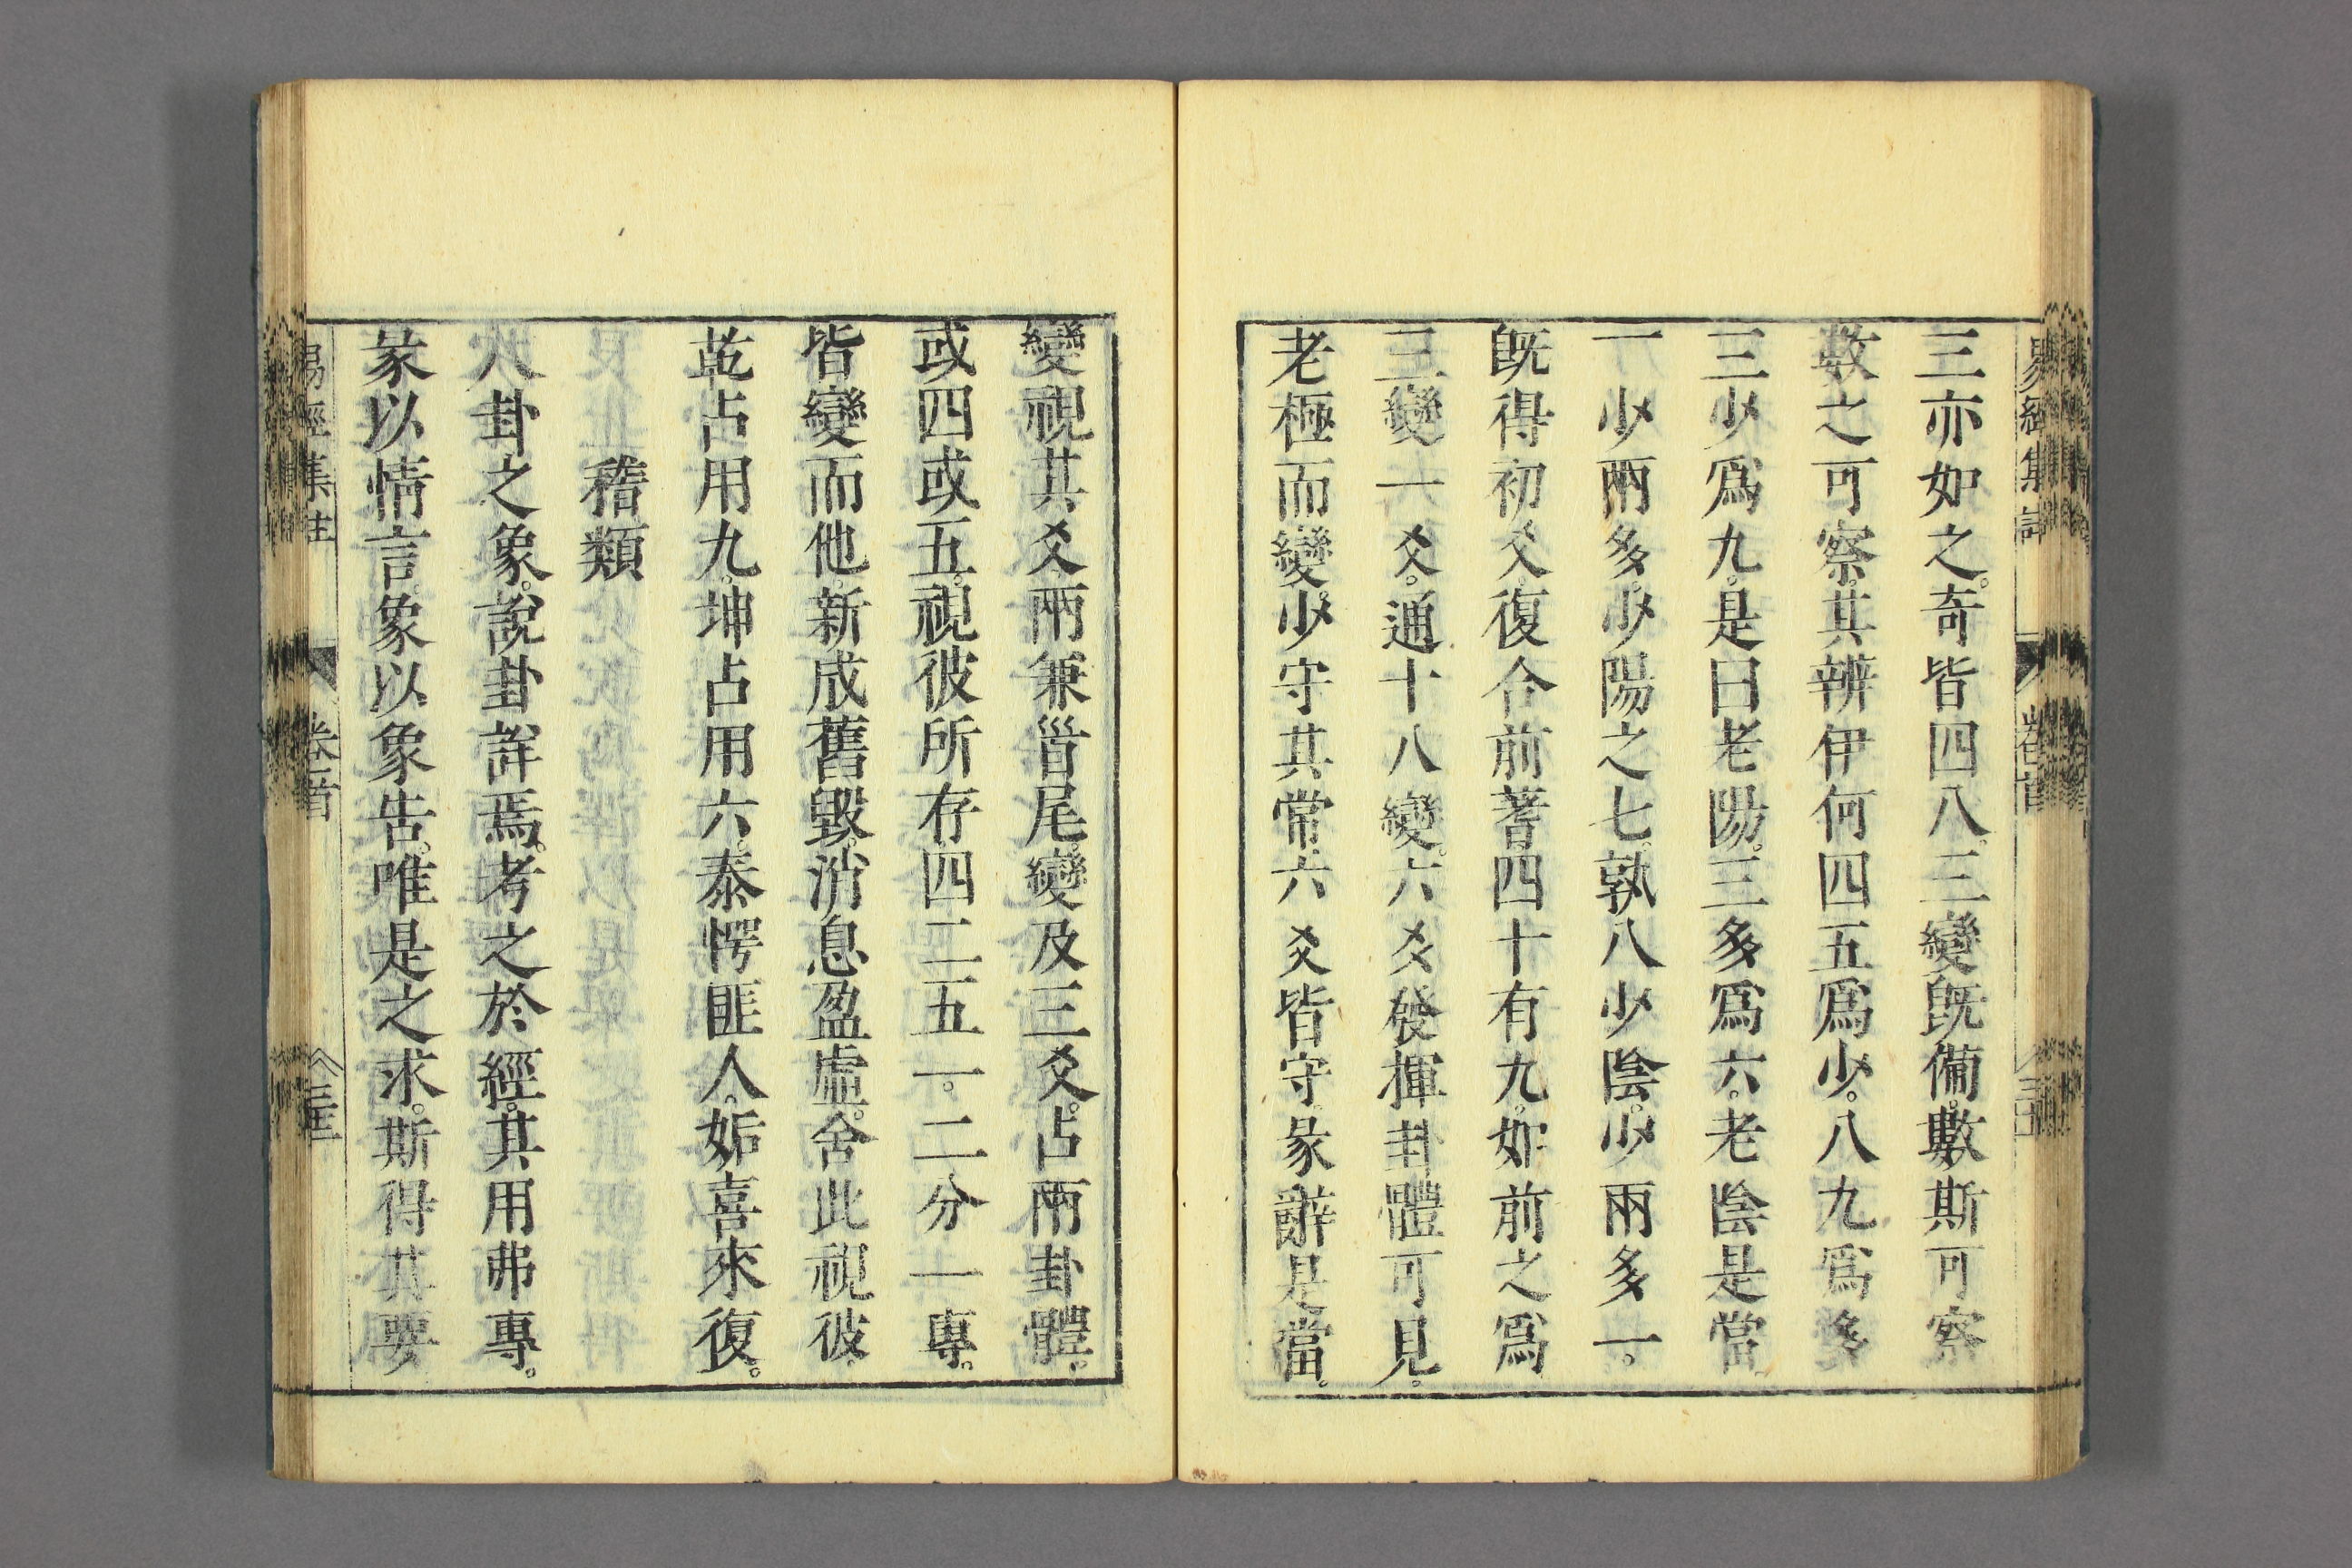 三亦如之。奇皆四八。三變既備。數斯可察
數之可察。其辨伊何。四五爲少。八九爲多
三少爲九。是曰老陽。三多爲六。老陰是當
一少兩多。少陽之七。孰八少陰。少兩多一。
既得初爻。復合前蓍。四十有九。如前之爲
三變一爻。通十八變。六爻發揮。卦體可見。
老極而變。少守其常。六爻皆守。彖辭是當。
變視其爻。兩兼首尾。變及三爻。占兩卦體。
或四或五。視彼所存。四二五一。二分一專。
皆變而他。新成舊毀。消息盈虛。舍此視彼。
乾占用九。坤占用六。泰愕匪人。姤喜來復。
稽類
八卦之象。說卦詳焉。考之於經。其用弗專。
彖以情言。象以象告。唯是之求。斯得其要
易經集註 卷首